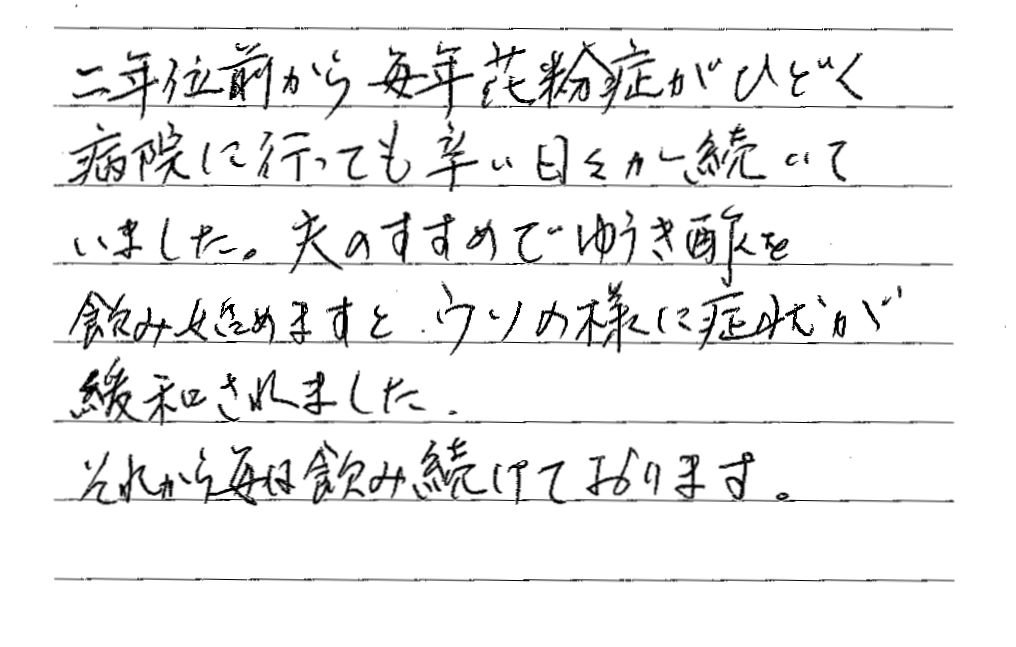 二年位前から毎年花粉症がひどく
病院に行っても辛い日々が続いて
いました。夫のすすめでゆうき酢を
飲み始めますと、ウソの様に症状が
緩和されました。
それから毎日飲み続けております。